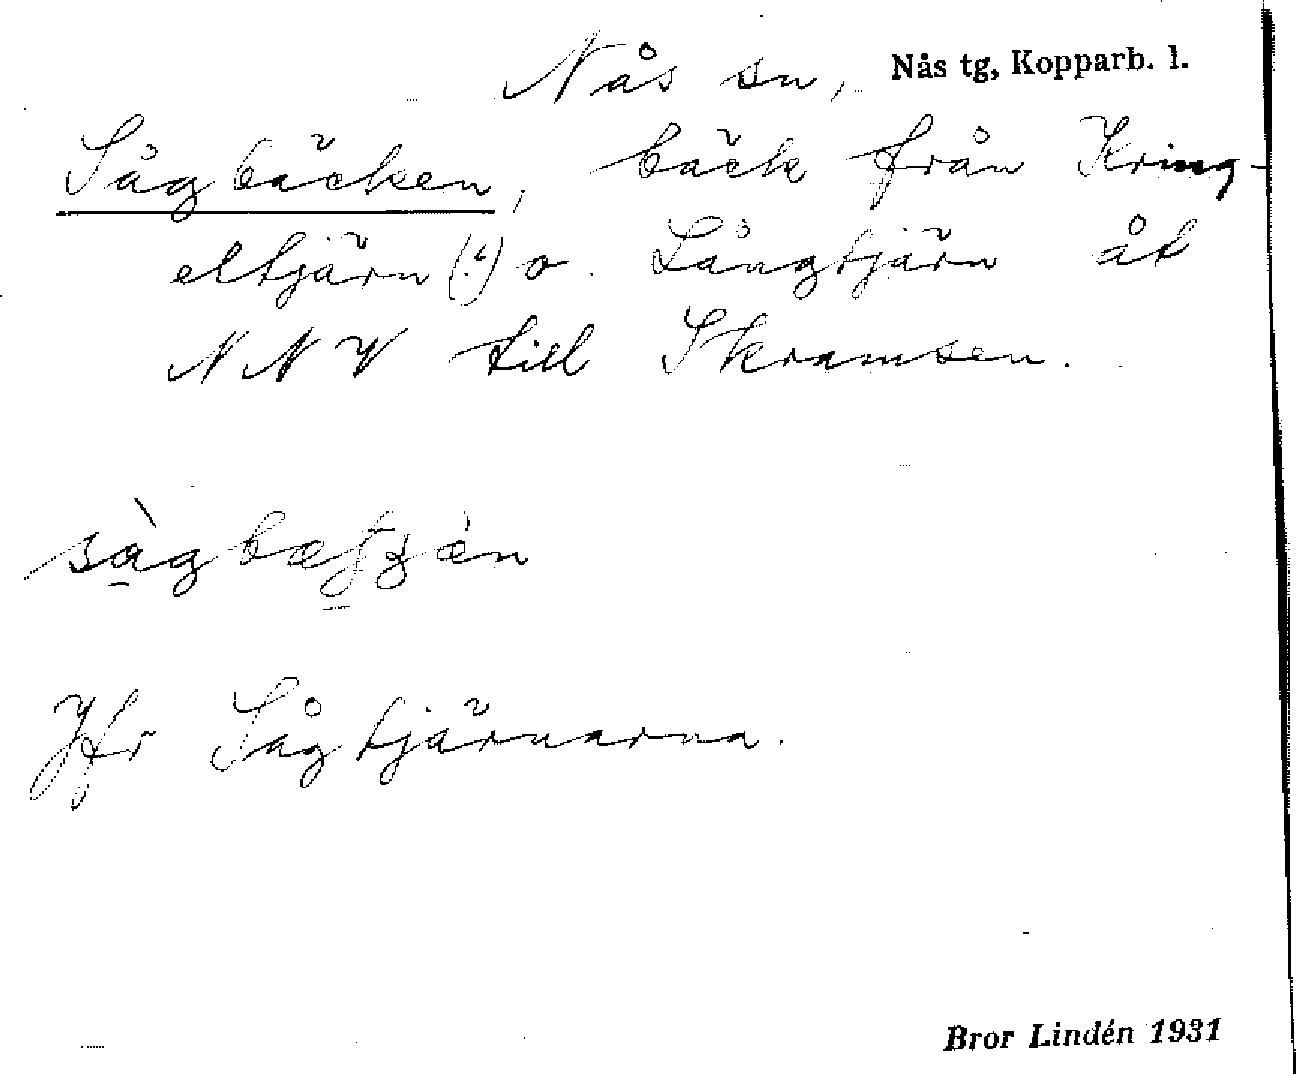 Nås sn, Nås tg, Kopparb. l.
Sågbäcken, bäck från Kring-
eltjärn (?) o. Långtjärn åt
NNV till Skramsen.
Jfr Sågtjärnarna.
Bror Lindén 1931